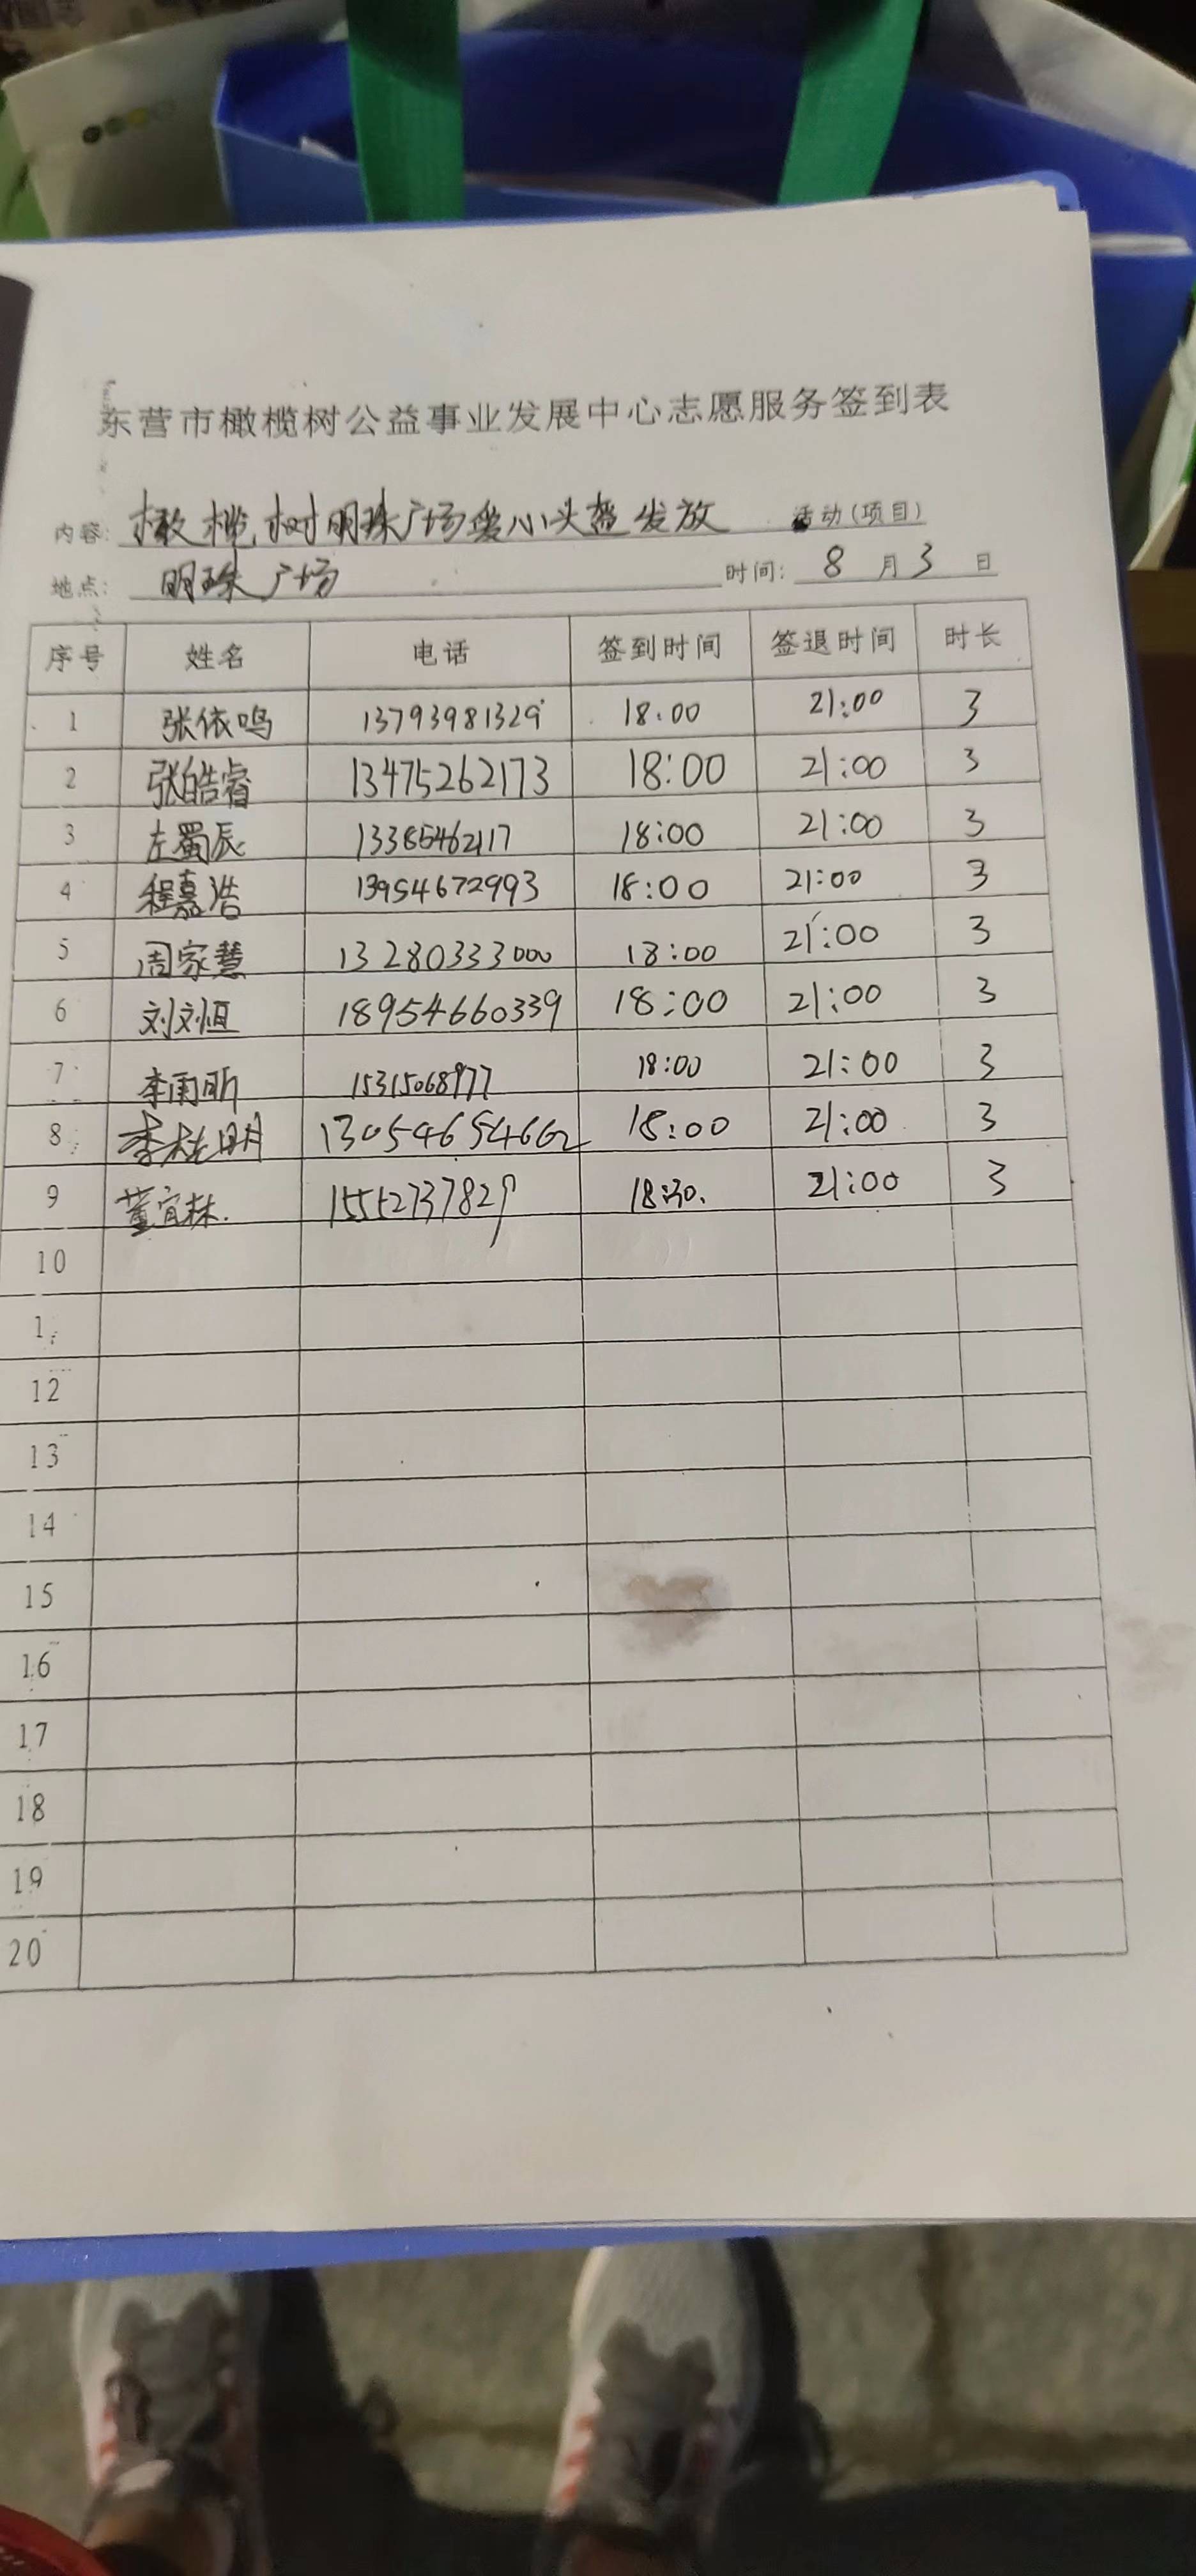 东营市橄榄树公益事业发展中心志愿服务签到表
内容: 橄榄树明珠广场爱心头盔发放 活动(项目)
地点: 明珠广场 时间: 8月3日
序号 姓名 电话 签到时间 签退时间 时长
1 张依鸣 13793981329 18:00 21:00 3
2 张皓睿 13475262173 18:00 21:00 3
3 左蜀辰 13385462117 18:00 21:00 3
4 程嘉浩 13954672993 18:00 21:00 3
5 周家慧 13280333000 18:00 21:00 3
6 刘文恒 18954660339 18:00 21:00 3
7 李雨昕 15315068977 18:00 21:00 3
8 李桂明 13054654662 18:00 21:00 3
9 董宜林. 15552737829 18:30. 21:00 3
10
1
12
13
14
15
16
17
18
19
20